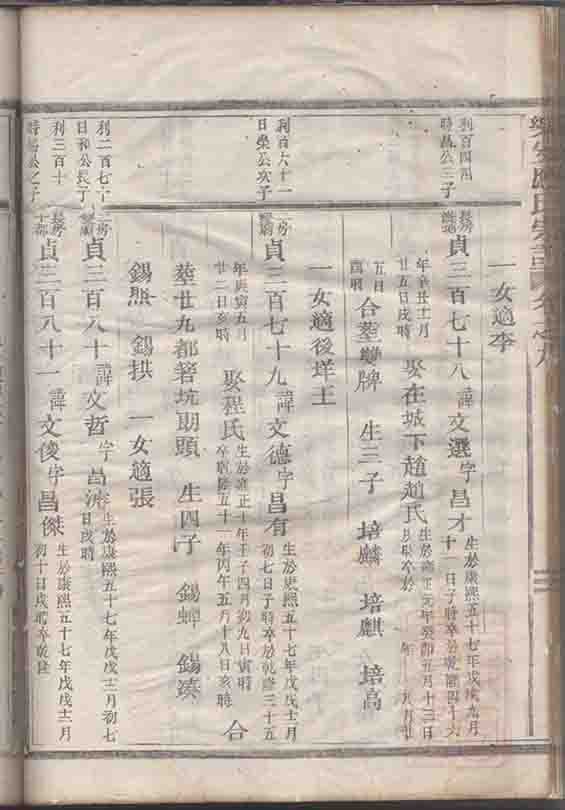 氏宗譜
一女適李
利百四四
時昌公三子
長房
貞三百七十八諱文選字昌才
生於康熙五十七年戊戌九月
十一日子時卒於乾隆四十六
年辛丑十一月
廿五日戌時
娶在城下趙趙氏
生於雍正元年癸卯五月十三日
五日
合塟
生三子 培麟 培麒 培高
一女適後垟王
利百六十一
日榮公次子
房
貞三百七十九諱文德字昌有
生於康熙五十七年戊戌十一月
初七日子時卒於乾隆三十五
年庚寅五月
廿二日亥時
娶程氏
生於雍正十年壬子四月初九日寅時
卒乾隆五十一年丙午五月十八日亥時
合
塟廿九都箬坑
頭
生四子 錫蟬 錫
錫熊 錫拱 一女適張
利二百七十
日和公長子
房
貞三百八十諱文哲字昌
生於康熙五十七年戊戌十二月初七
日戌時
利三百十
時
公之子
長房
十都
貞三百八十一諱文俊字昌傑
生於康熙五十七年戊戌十二月
初十日戌時卒乾隆